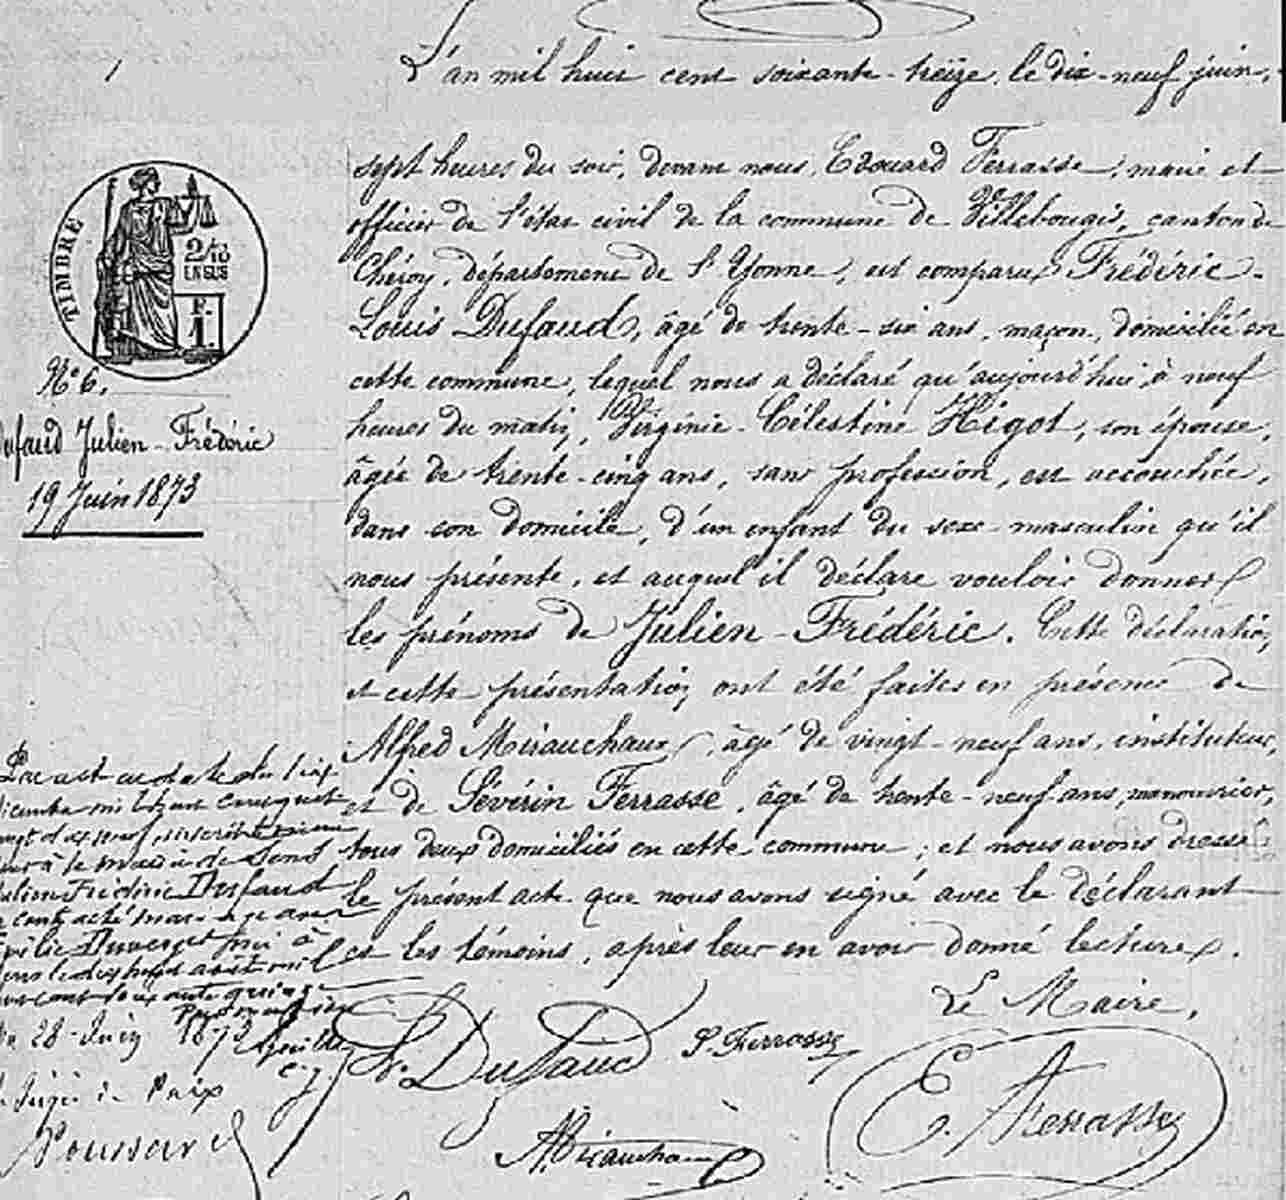 L'an mil huit cent soixante-treize, le dix-neuf juin,
sept heures du soir, devant nous, Edouard Ferrasse, maire et
officier de l'état civil de la commune de Villebougis, canton de
Chéroy, département de l'Yonne, est comparu Frédéric-
Louis Dufaud, âgé de trente-six ans, maçon, domicilié en
cette commune, lequel nous a déclaré qu'aujourd'hui, à neuf
heures du matin, Virginie-Célestine Higot, son épouse,
âgée de trente-cinq ans, sans profession, est accouchée,
dans son domicile, d'un enfant du sexe masculin qu'il
nous présente, et auquel il déclare vouloir donner
les prénoms de Julien-Frédéric. Cette déclaration
et cette présentation ont été faites en présence de
Alfred Mirauchaux, âgé de vingt-neuf ans, instituteur,
et de Sévérin Ferrasse, âgé de trente-neuf ans, manouvrier,
tous deux domiciliés en cette commune; et nous avons dressé
le présent acte que nous avons signé avec le déclarant
et les témoins, après leur en avoir donné lecture.
Le Maire,
Dufaud
S. Ferrasse
E. Ferrasse
A. Mirauchaux
TIMBRE
2/10
EN SUS
F.
1.
No 6.
Dufaud Julien-Frédéric
19 Juin 1873
Par acte en date du
inscrit
à la mairie de Sens
Julien Frédéric Dufaud
a contracté mariage avec
28 Juin 1873
Juge de Paix